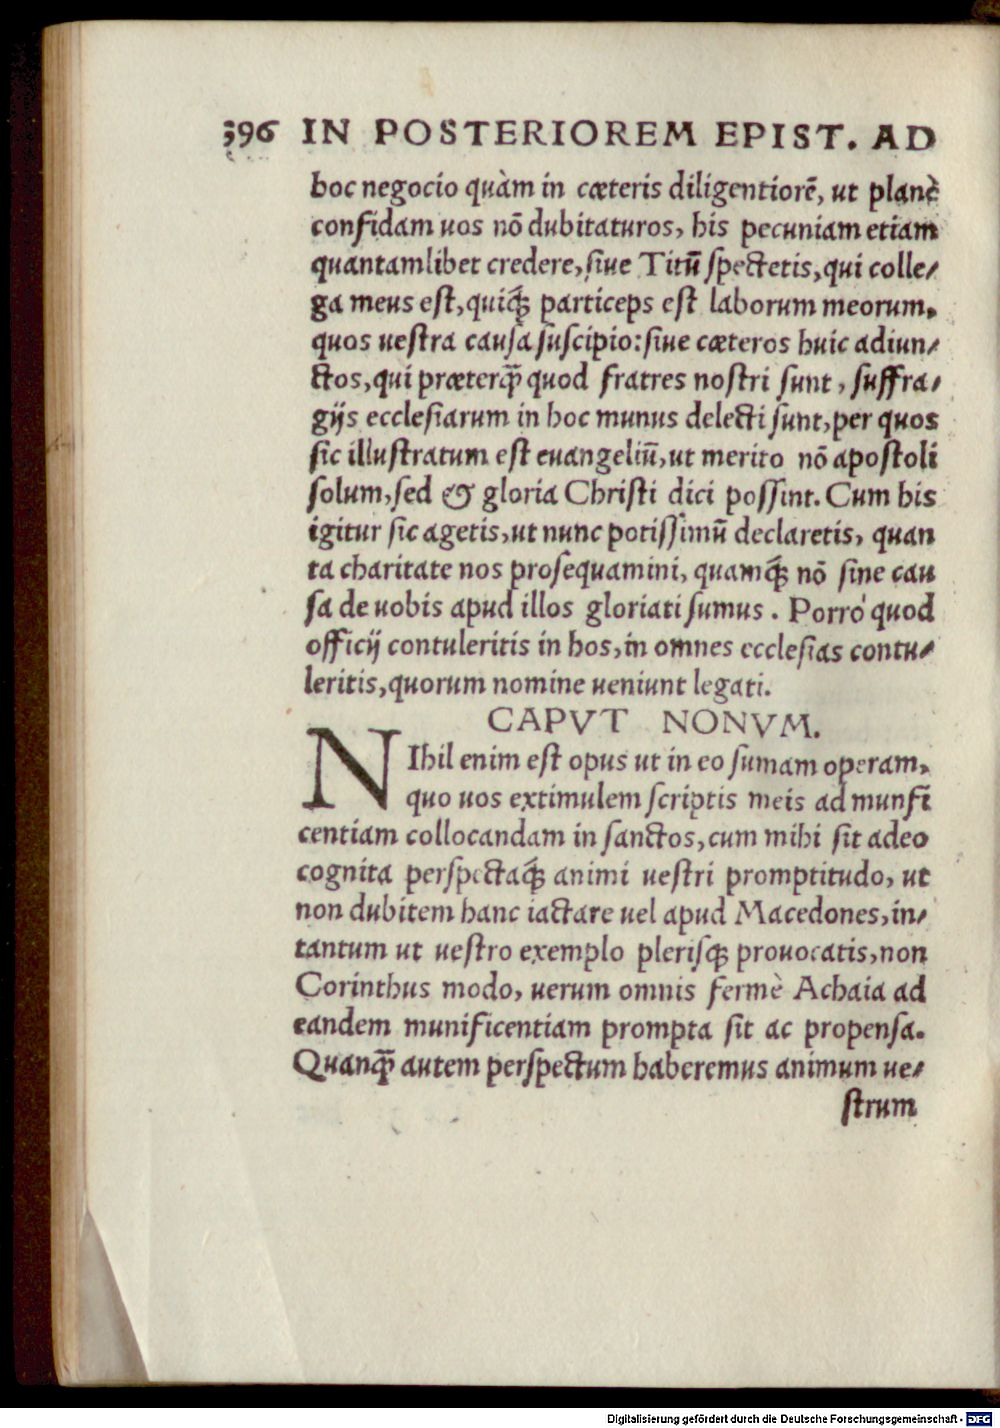 396 IN POSTERIOREM EPIST. AD
hoc negocio quàm in cæteris diligentiorē, ut planè
confidam uos nō dubitaturos, his pecuniam etiam
quantamlibet credere, ſiue Titū ſpectetis, qui colle/
ga meus eſt, quiq́; particeps eſt laborum meorum,
quos ueſtra cauſa ſuſcipio: ſiue cæteros huic adiun/
ctos, qui præterq̄ quod fratres noſtri ſunt, ſuffra/
gijs eccleſiarum in hoc munus delecti ſunt, per quos
ſic illuſtratum eſt euangeliū, ut merito nō apoſtoli
ſolum, ſed & gloria Chriſti dici poſſint. Cum his
igitur ſic agetis, ut nunc potiſſimū declaretis, quan
ta charitate nos proſequamini, quamq́; nō ſine cau
ſa de uobis apud illos gloriati ſumus. Porrò quod
officij contuleritis in hos, in omnes eccleſias contu/
leritis, quorum nomine ueniunt legati.
CAPVT NONVM.
NIhil enim eſt opus ut in eo ſumam operam,
quo uos extimulem ſcriptis meis ad munfi
centiam collocandam in ſanctos, cum mihi ſit adeo
cognita perſpectaq́; animi ueſtri promptitudo, ut
non dubitem hanc iactare uel apud Macedones, in/
tantum ut ueſtro exemplo pleriſq; prouocatis, non
Corinthus modo, uerum omnis fermè Achaia ad
eandem munificentiam prompta ſit ac propenſa.
Quanq̄ autem perſpectum haberemus animum ue/
ſtrum
Digitalisierung gefördert durch die Deutsche Forschungsgemeinschaft - DFG